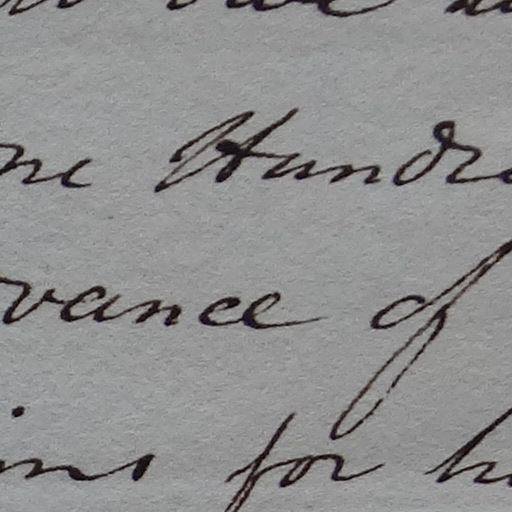 ne Hundre
vance of
ins for h